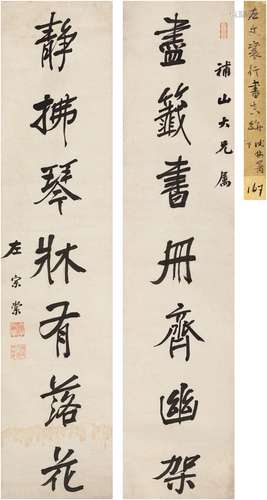 補山大兄屬
盡籤書冊齊幽架
靜拂琴牀有落花
左宗棠
左文襄行書
167